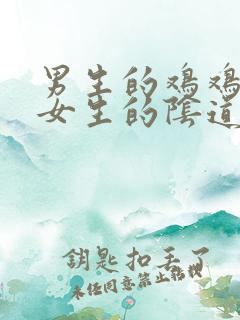 男生的鸡鸡
女生的陰道
鑰匙扣丢了
未经同意禁止转载